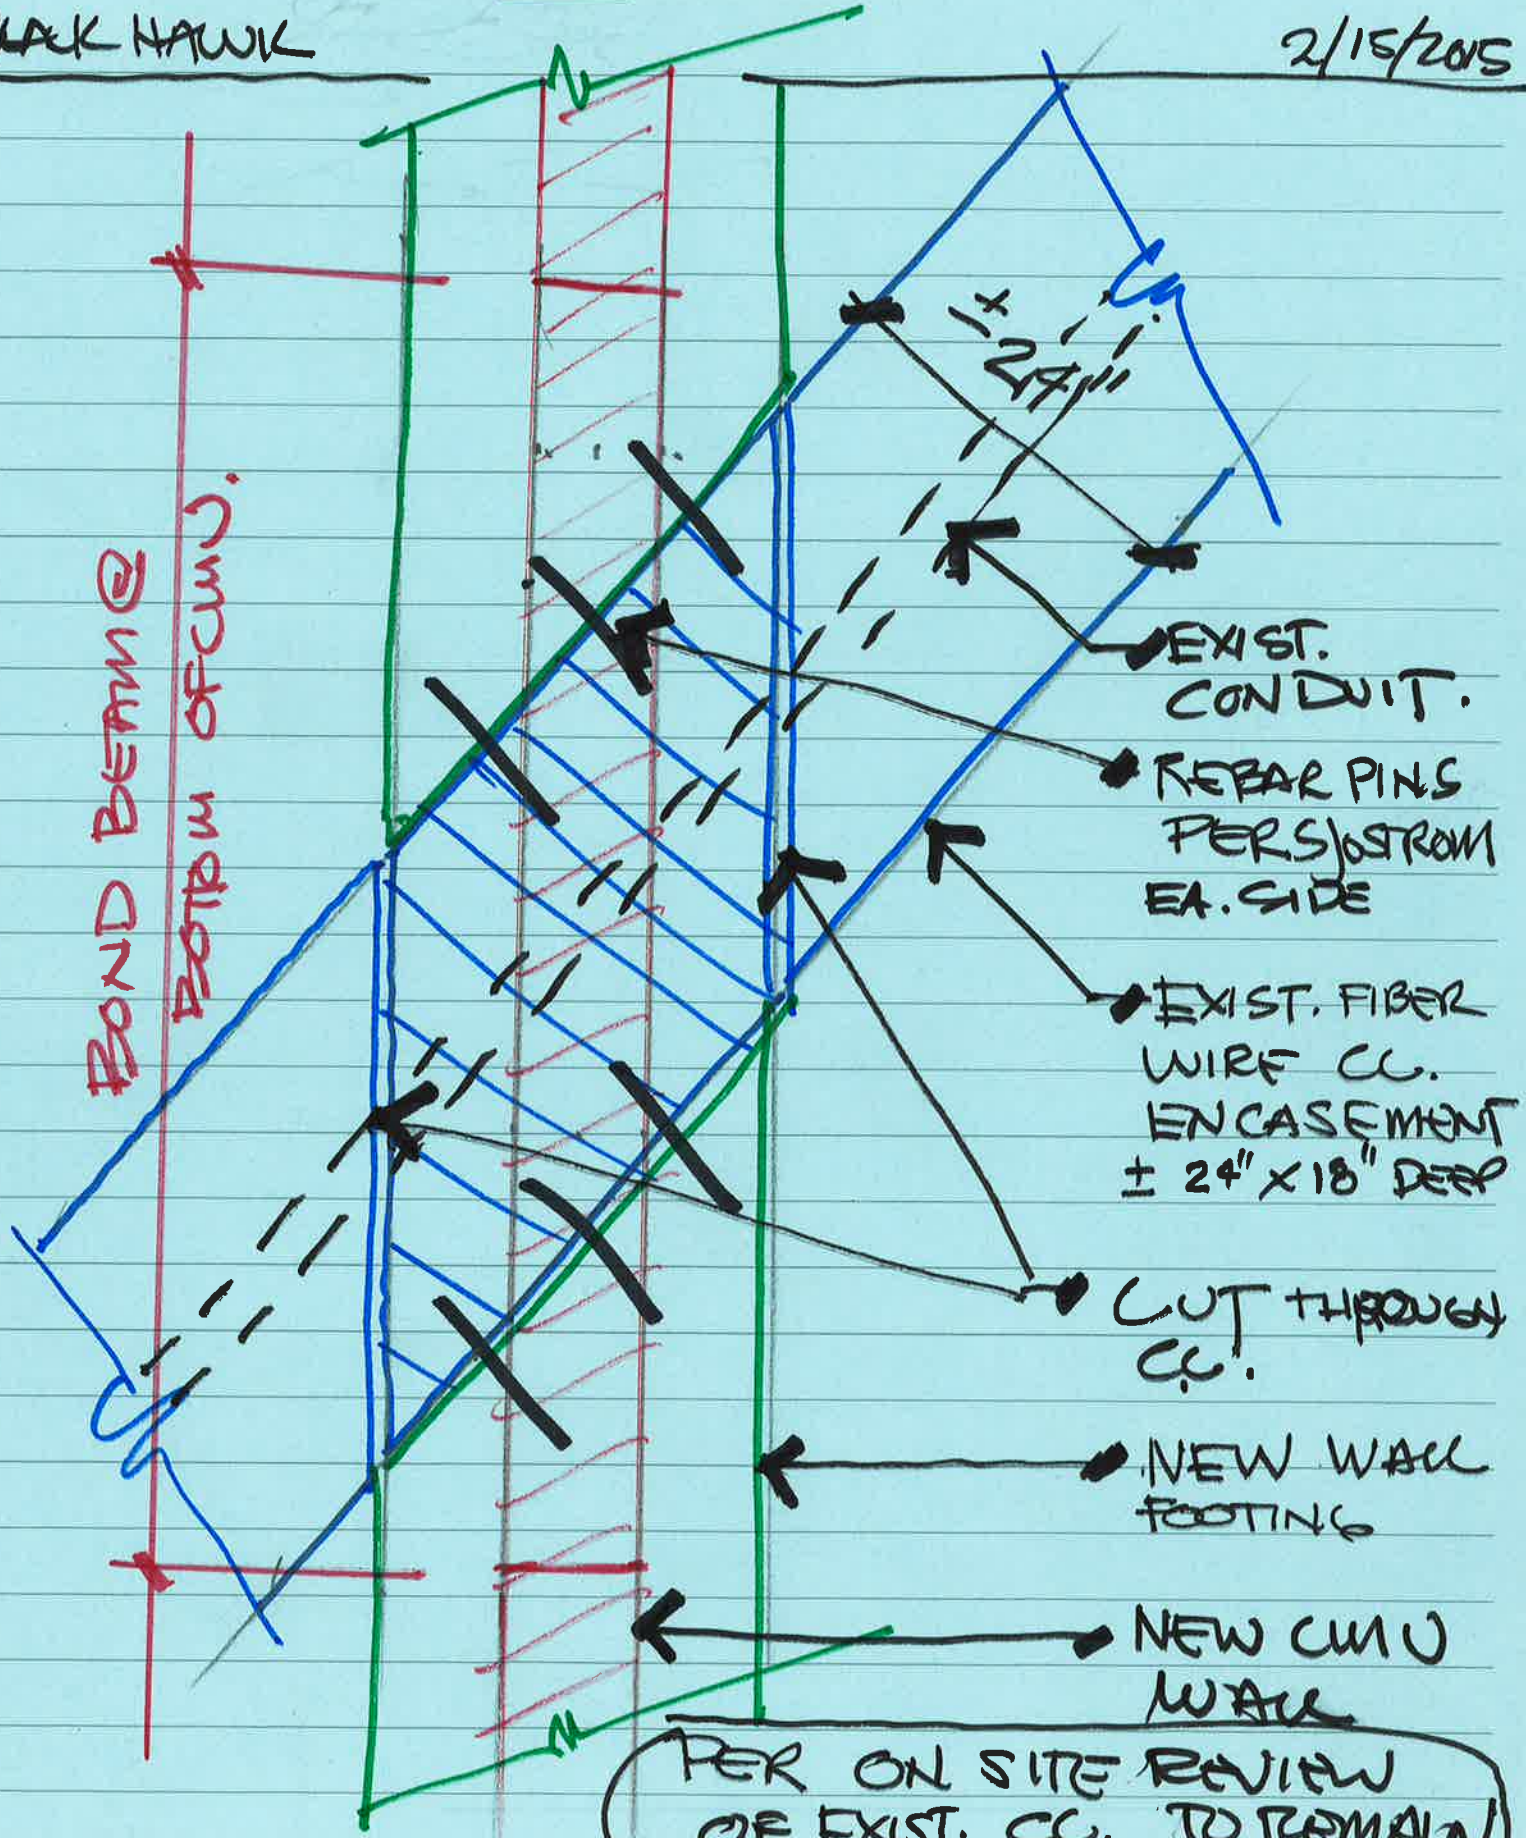 LACK HAWK
2/15/2015
BOND BEAM @
BOTTOM OF CMU.
±
24"
EXIST.
CONDUIT.
REBAR PINS
PER SJOSTROM
EA. SIDE
EXIST. FIBER
WIRE CC.
ENCASEMENT
± 24" X 18" DEEP
CUT THROUGH
CC.
NEW WALL
FOOTING
NEW CMU
WALL
PER ON SITE REVIEW
OF EXIST. CC. TO REMAIN